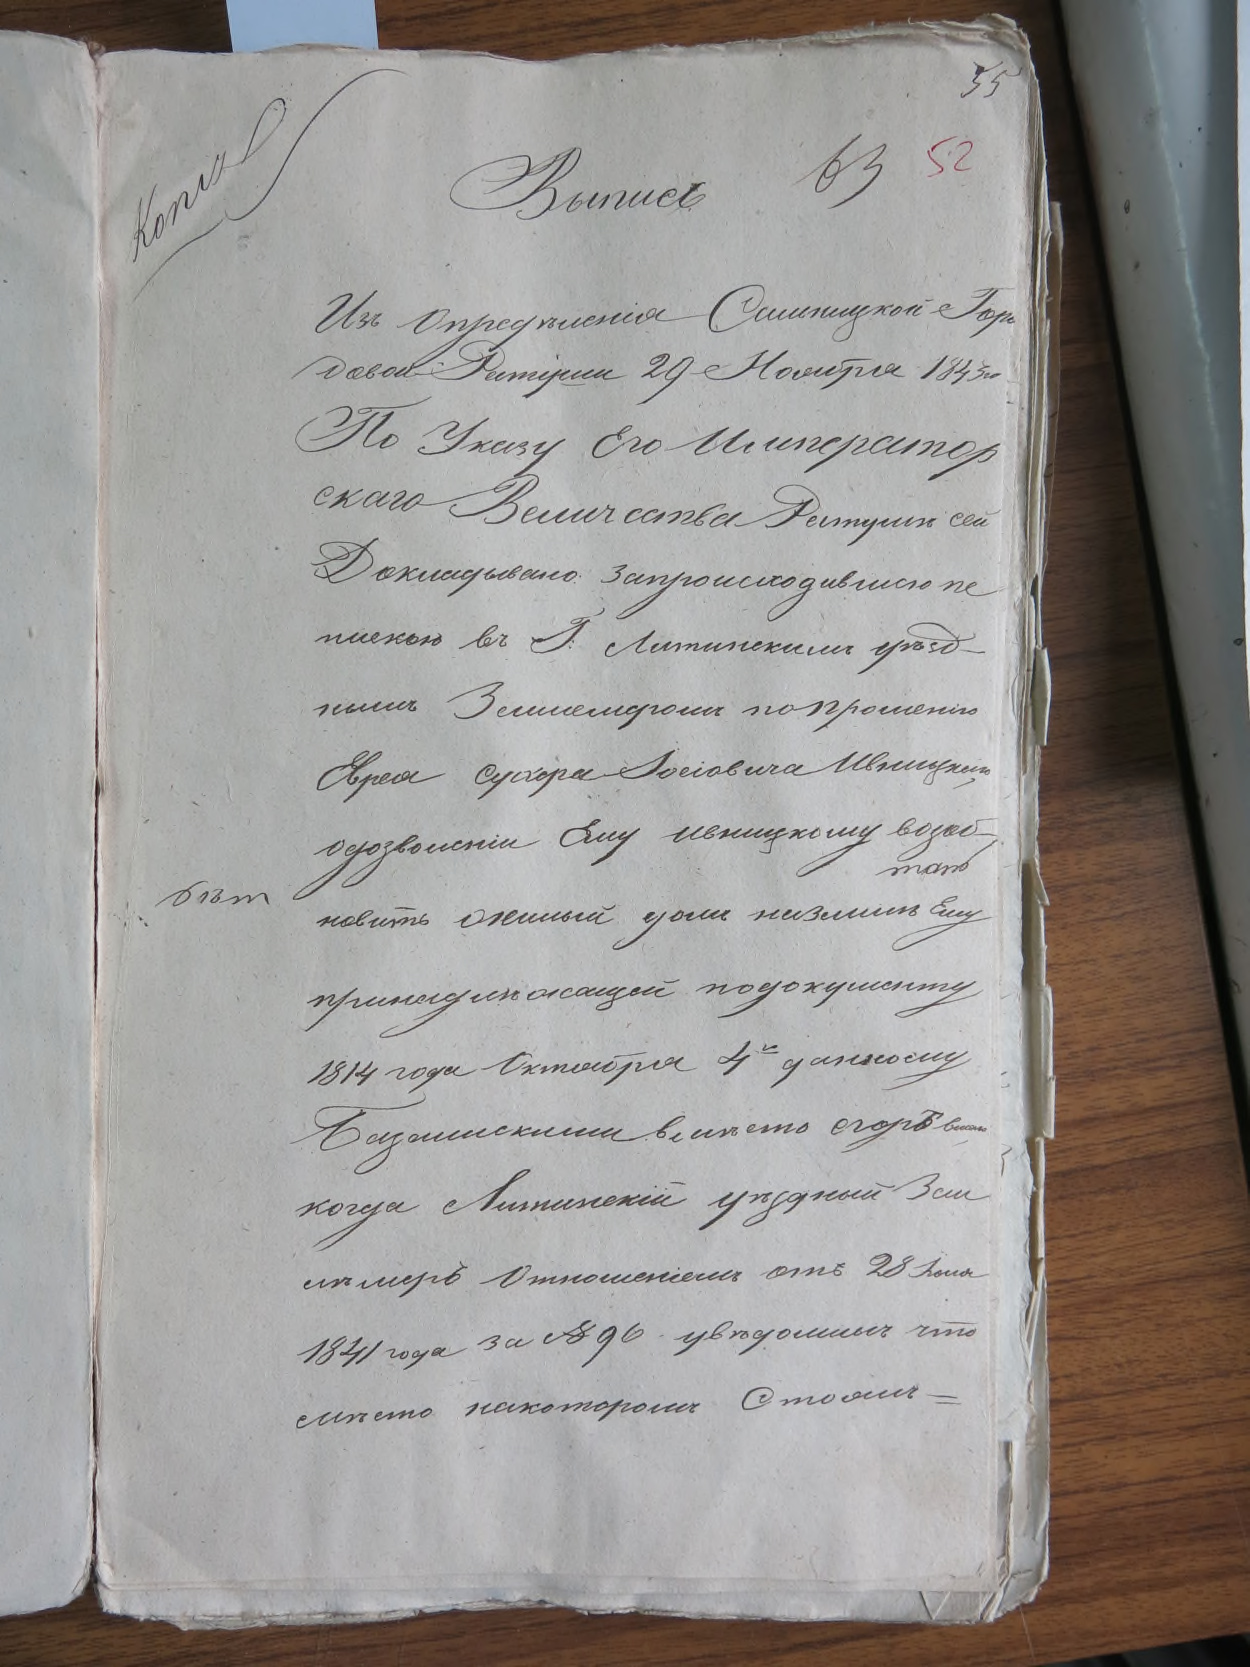 55
Копія
Выпись 63 52
Изъ Определенія Сальницкой Горо
довой Ратуши 29 Ноября 1843го
По Указу Его Император
скаго Величества Ратушѣ сей
Докладывано запроисходившею пе
пискою въ Г. Литинскимъ уѣзд-
нымъ Землемѣромъ попрошенію
Еврея Сухера Іосіовича Ивницкаго
одозволеніи Ему Ивницкому возоб-
тамъ
новить дом наземлѣ Ему
бѣт
принадлѣжащей подокументу
1814 года Октября 4го данному
вмѣсто
когда Литинскій уѣздный Зем
лѣмеръ Отношеніемъ отъ 28
1841 года за № 96 увѣдомилъ что
мѣсто накоторомъ Стоялъ =